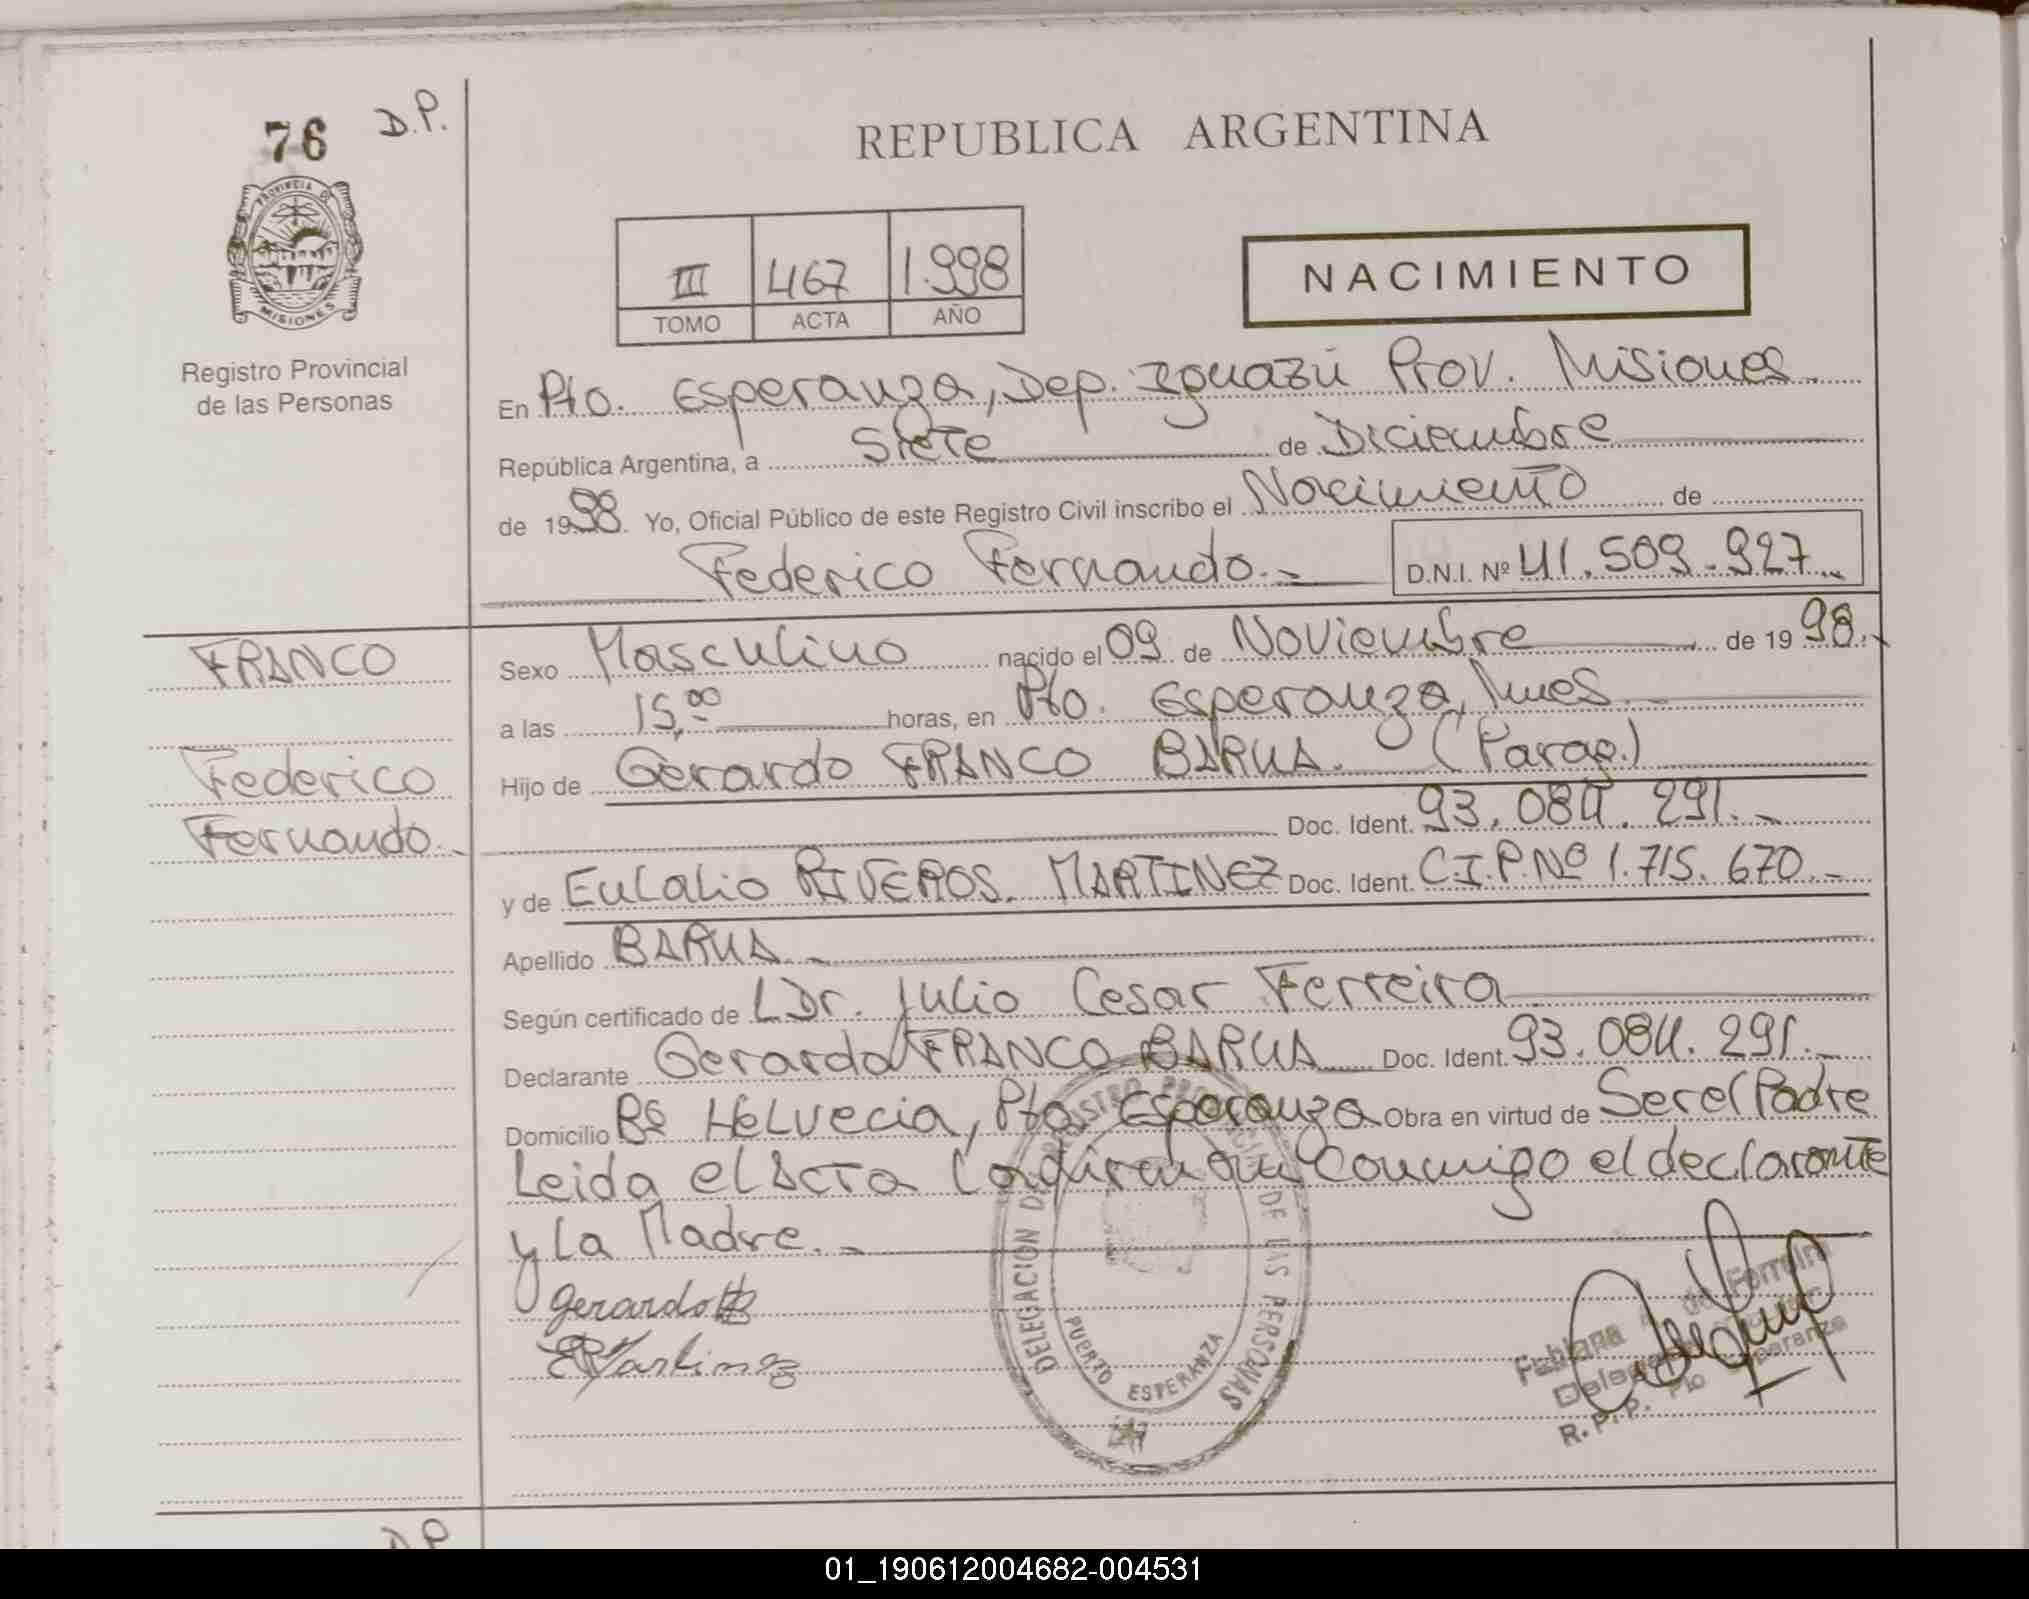 76 D.P.
PROVINCIA DE
MISIONES
Registro Provincial
de las Personas
REPUBLICA ARGENTINA
III 467 1.998
TOMO ACTA AÑO
NACIMIENTO
En Pto. Esperanza, Dep. Iguazú Prov. Misiones
República Argentina, a Siete de Diciembre
de 1998. Yo, Oficial Público de este Registro Civil inscribo el Nacimiento de
Federico Fernando.- D.N.I. Nº 41.509.927
FRANCO
Federico
Fernando.-
Sexo Masculino nacido el 09 de Noviembre de 1998.-
a las 15,00 horas, en Pto. Esperanza, Mnes
Hijo de Gerardo FRANCO BARUA. (Parag.)
Doc. Ident. 93.084.291.-
y de Eulalio RIVEROS. MARTINEZ Doc. Ident. C.I.P.Nº 1.715.670.-
Apellido BARUA.-
Según certificado de LDr. Julio Cesar Ferreira
Declarante Gerardo FRANCO BARUA Doc. Ident. 93.084.291.-
Domicilio Bº Helvecia, Pto Esperanza Obra en virtud de Ser el Padre
Leida el Acta la firman conmigo el declarante
y La Madre.-
Gerardo
ERMartinez
DELEGACION DEL REGISTRO PROVINCIAL DE LAS PERSONAS
PUERTO ESPERANZA
Fabiana de Ferreira
R.P.P. Pto Esperanza
D.P
01_190612004682-004531